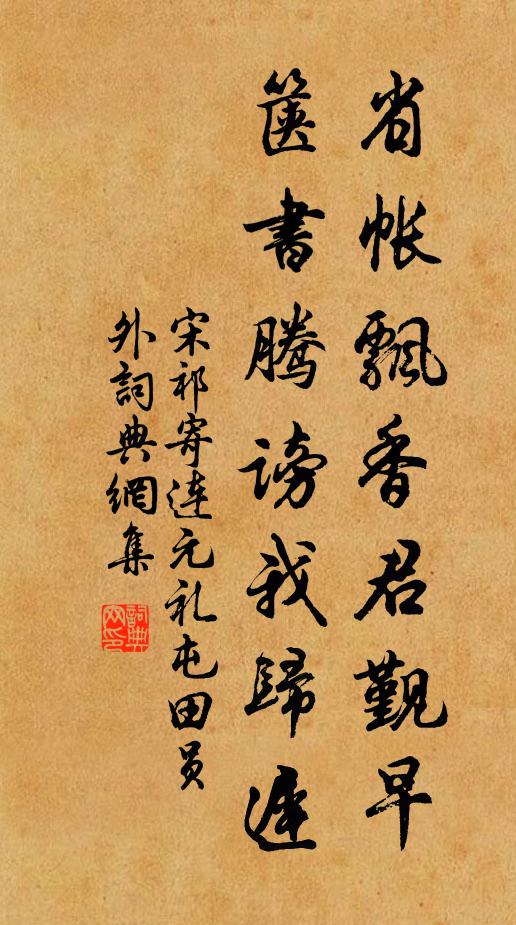 省帐飘香君觐早
箧书腾谤我归迟
宋祁寄连元礼屯田员
外词典网集